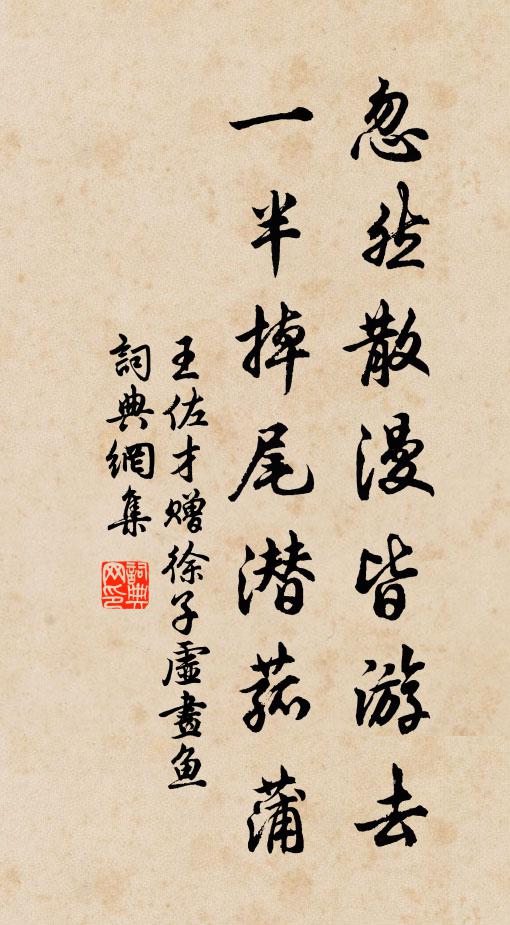 忽然散漫皆游去
一半掉尾潜菰蒲
王佐才赠徐子虛畫魚
詞典網集
詞典网印